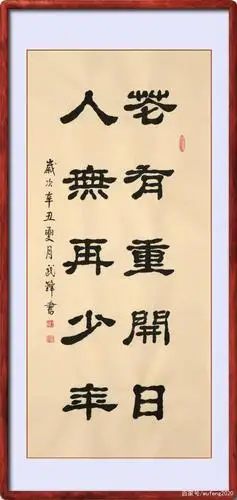 花有重開日
人無再少年
歲次辛丑夏月武鋒書
百家号/wufeng2020